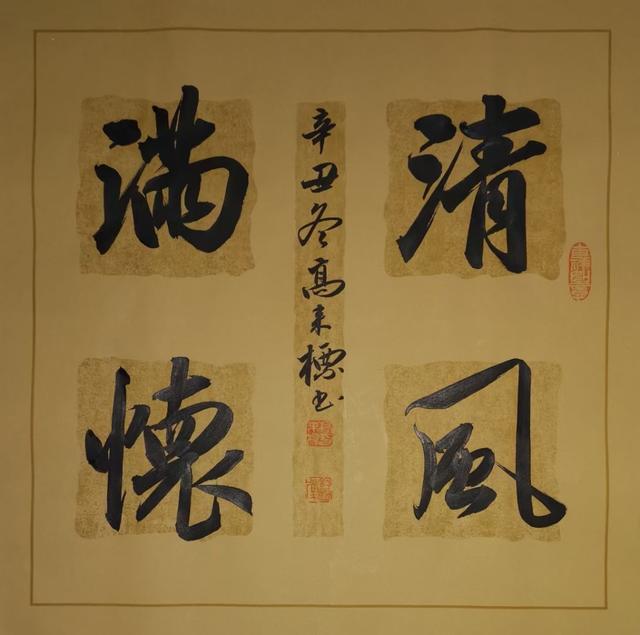 清風
滿懷
辛丑冬高来標书